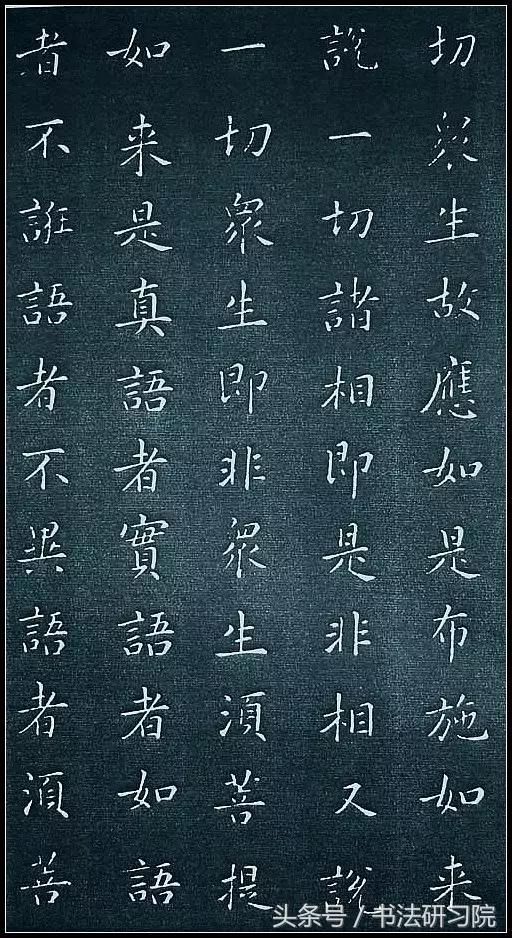 切衆生故應如是布施如来
說一切諸相即是非相又說
一切衆生即非衆生湏菩提
如来是真語者實語者如語
者不誑語者不異語者湏菩
头条号／书法研习院